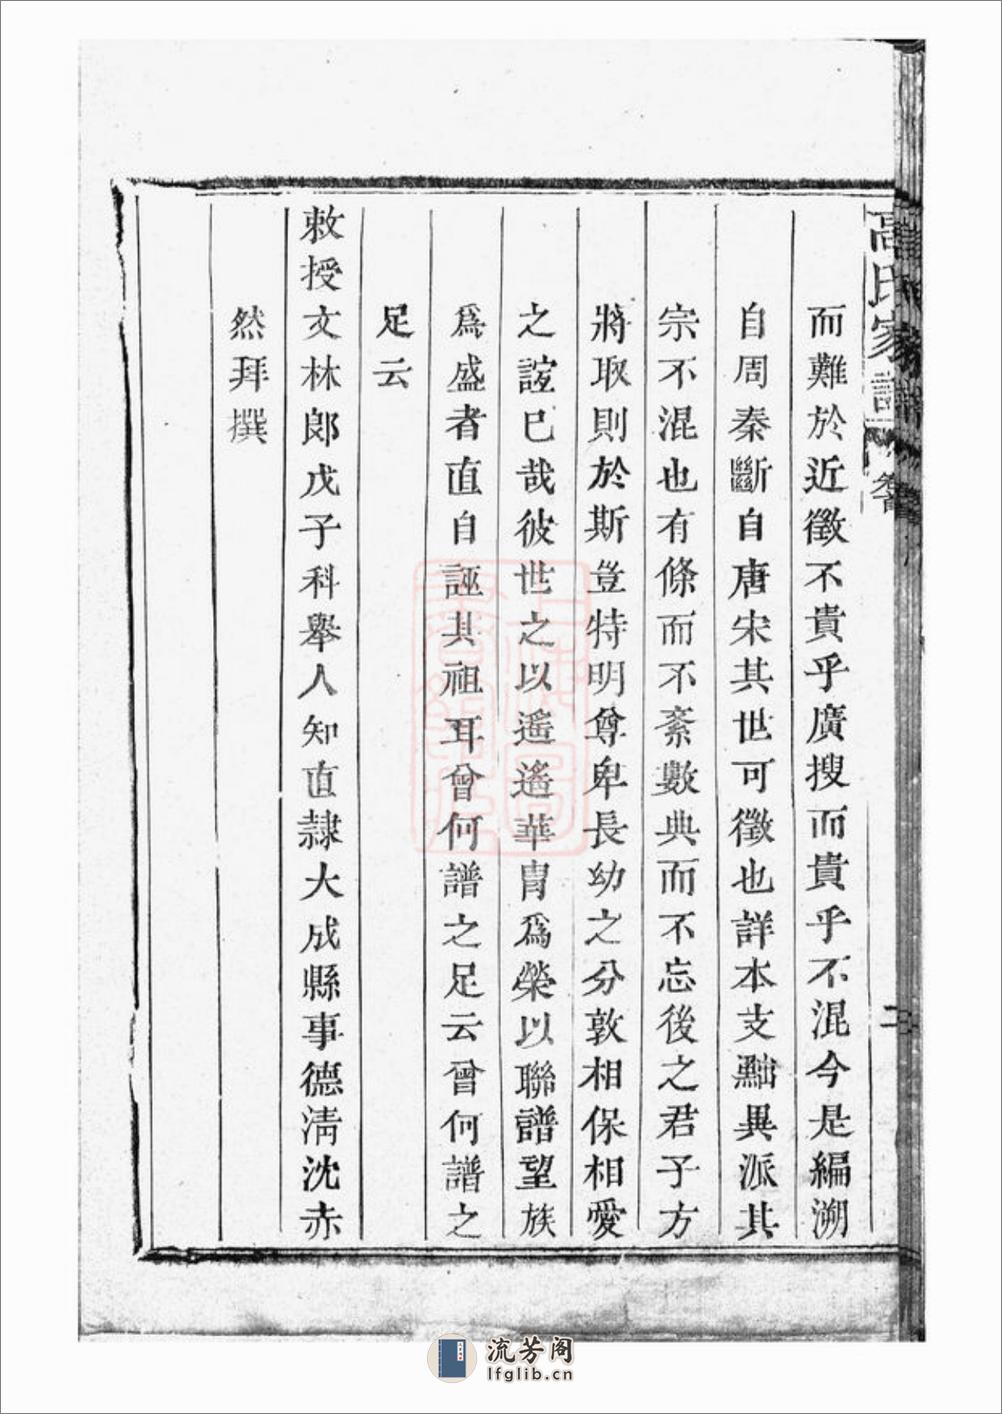 高氏家譜
二
而難於近徵不貴乎廣搜而貴乎不混今是編溯
自周秦斷自唐宋其世可徵也詳本支黜異派其
宗不混也有條而不紊數典而不忘後之君子方
將取則於斯豈特明尊卑長幼之分敦相保相愛
之誼已哉彼世之以遥遥華胄爲榮以聯譜望族
爲盛者直自誣其祖耳曾何譜之足云曾何譜之
足云
敕授文林郎戊子科舉人知直隸大成縣事德清沈赤
然拜撰
流芳阁
lfglib.cn